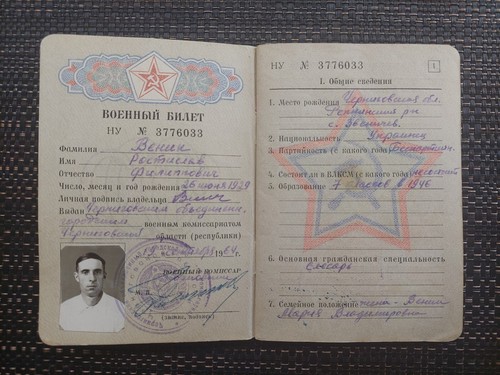 ВОЕННЫЙ БИЛЕТ
НУ № 3776033
Фамилия Веник
Имя Ростислав
Отчество Филиппович
Число, месяц и год рождения 26 июня 1929
Личная подпись владельца
Выдан Черниговским объединен.
городским военным комиссариатом
Черниговской области (республики)
19 1964
ВОЕННЫЙ КОМИССАР
М.П.
(звание, подпись)
НУ № 3776033
1
I. Общие сведения
1. Место рождения Черниговская обл.
Репкинский рн
с.
2. Национальность Украинец
3. Партийность (с какого года) Беспартийн.
4. Состоит ли в ВЛКСМ (с какого года) не состоит
5. Образование 7 классов в 1946
6. Основная гражданская специальность
Слесарь
7. Семейное положение жена - Веник
Мария Владимировна